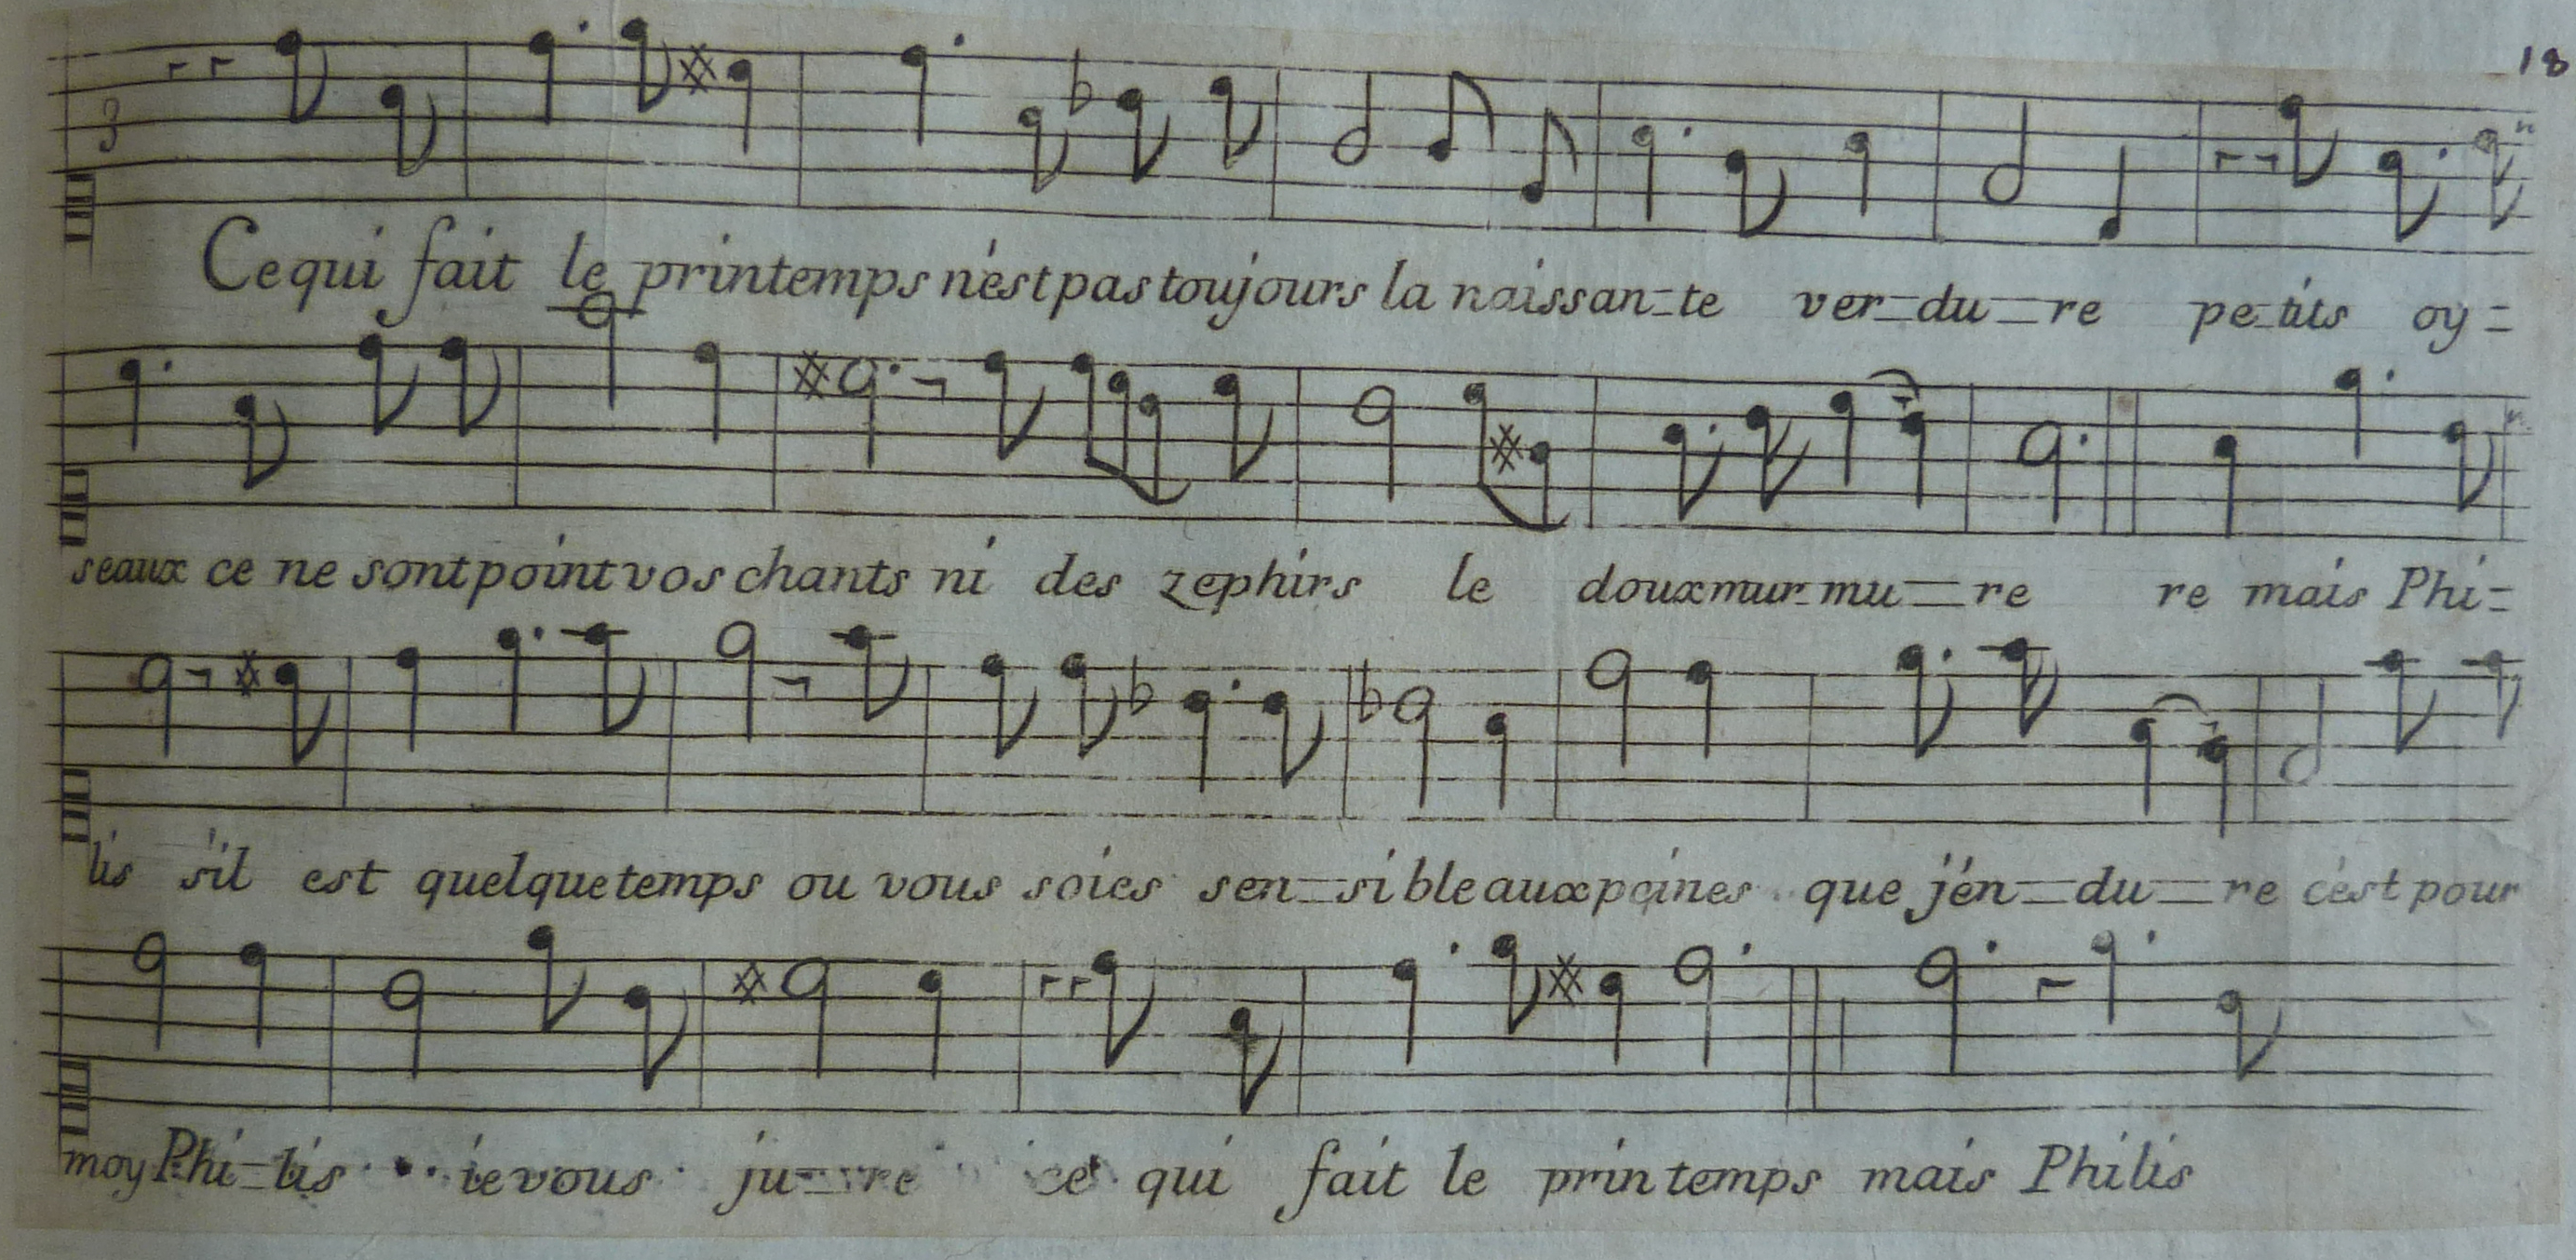 18
3
Ce qui fait le printemps n'est pas toujours la naissan=te ver=du=re petits oy=
seaux ce ne sont point vos chants ni des zephirs le doux murmu=re re mais Phi=
lis s'il est quelque temps ou vous soies sen=sible aux peines que j'én=du=re c'est pour
moy Phi=lis ie vous ju=re ce qui fait le printemps mais Philis